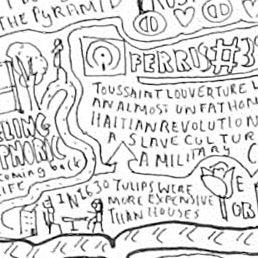 THE PYRAMID
FERRIS #3
TOUSSAINT LOUVERTURE
AN ALMOST UNFATHOM
HAITIAN REVOLUTION
A SLAVE CULTUR
A MILITARY
ELING
PHORIC
coming back
LIFE
IN 1630 TULIPS WERE
MORE EXPENSIVE
THAN HOUSES
OR